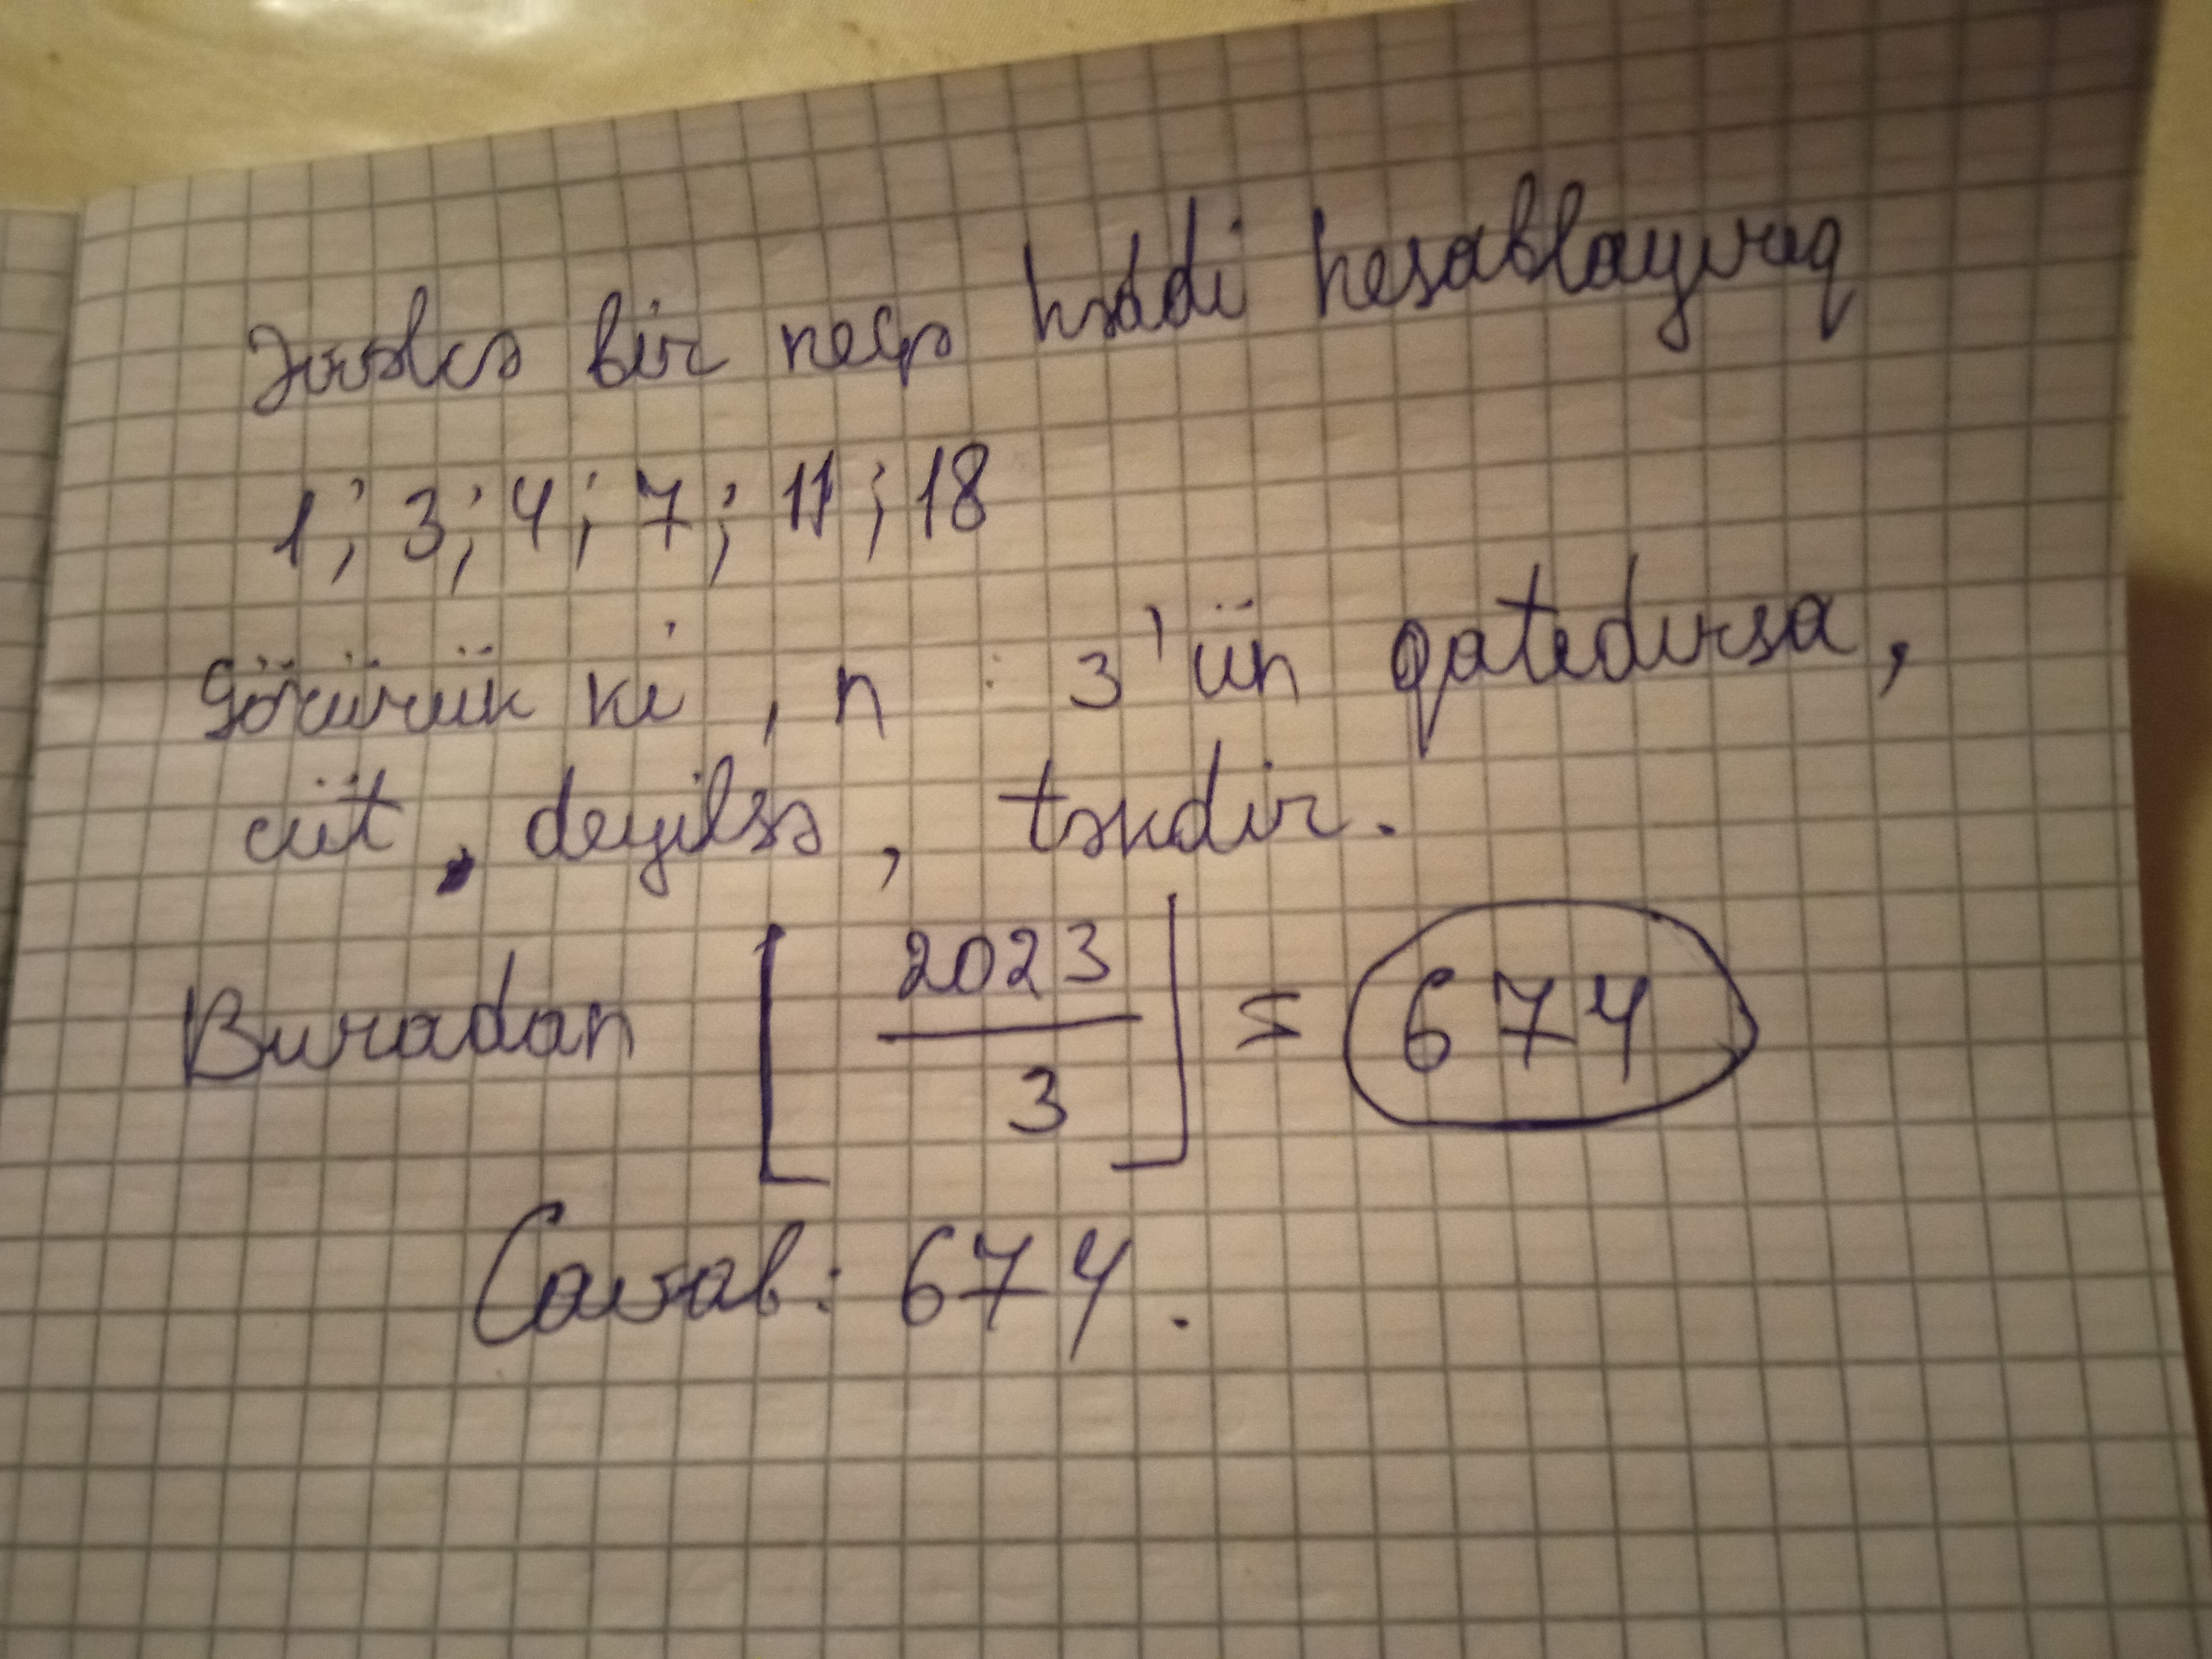 Əvvəlcə bir neçə həddi hesablayıraq
1; 3; 4; 7; 11; 18
Görürük ki, n 3'ün qatıdırsa,
cüt, deyilsə, təkdir.
Buradan ⌊2023/3⌋ = 674
Cavab: 674.